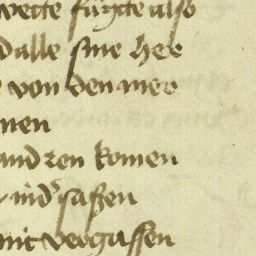 wette fůgte also
d alle sine her
von den mer
nen
and ren komen
ind' saßen
mit vergassen